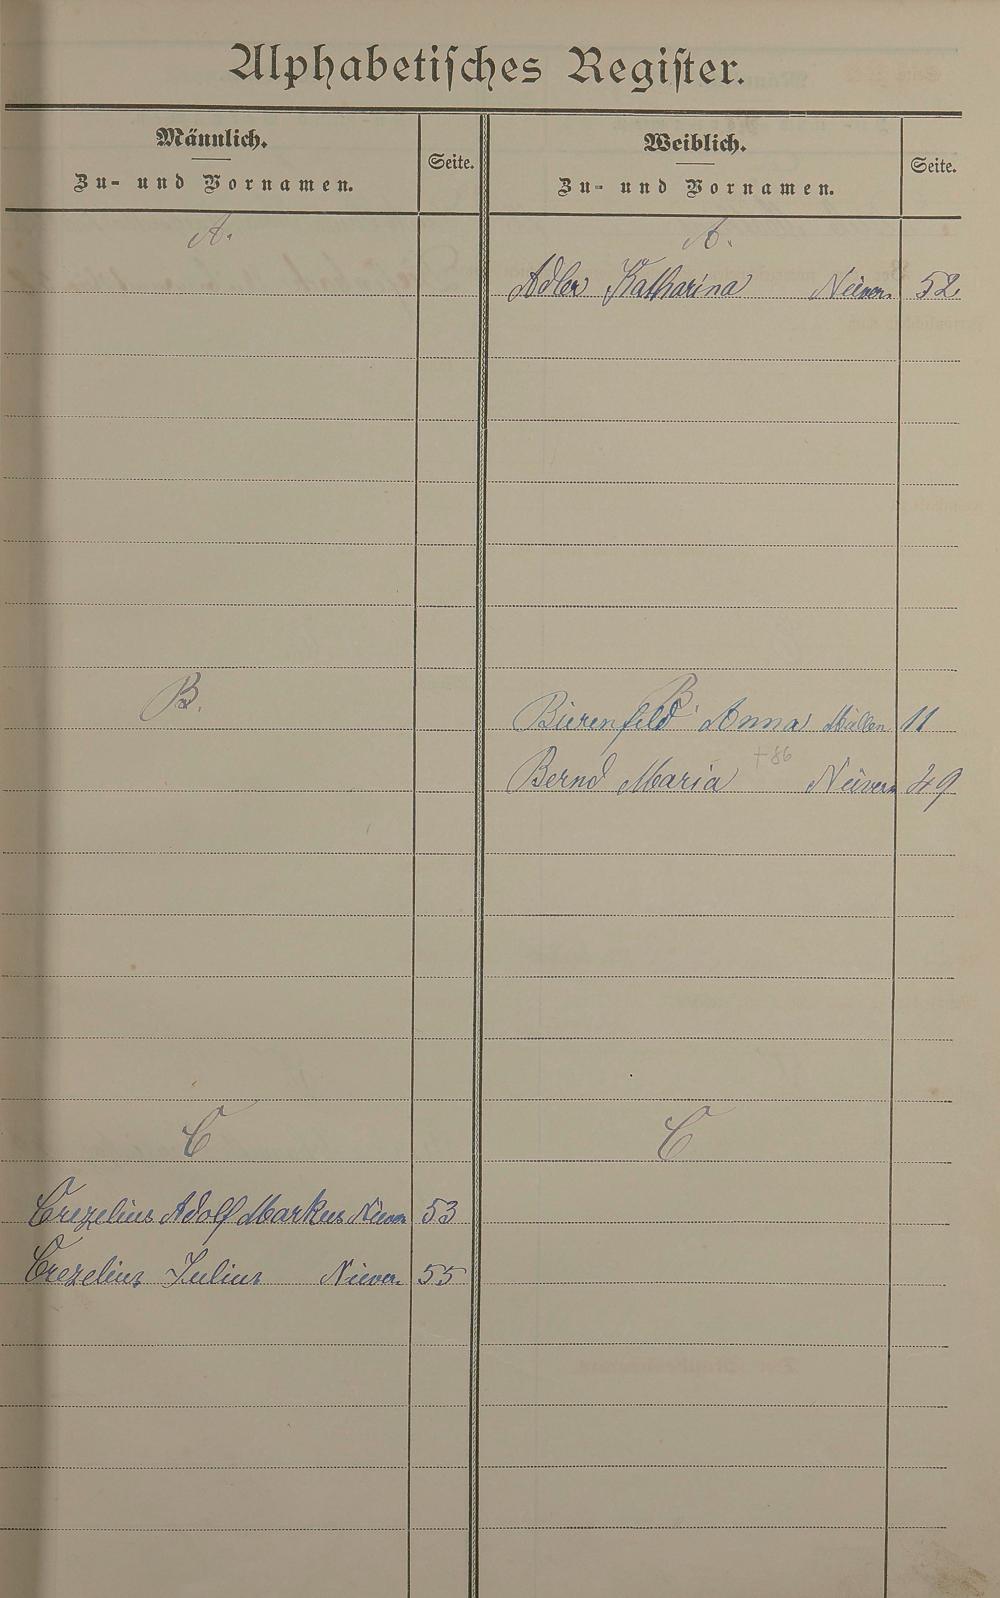 Alphabetisches Register.
Männlich.
Zu- und Vornamen.
Seite.
Weiblich.
Zu- und Vornamen.
Seite.
A.
A.
Adler Katharina Nievern 52
B.
B.
Bierenfeld Anna 11
+86
Bernd Maria Nievern 49
C
C
Crezelius Adolf Markus Nievern 53
Crezelius Julius Nievern 55